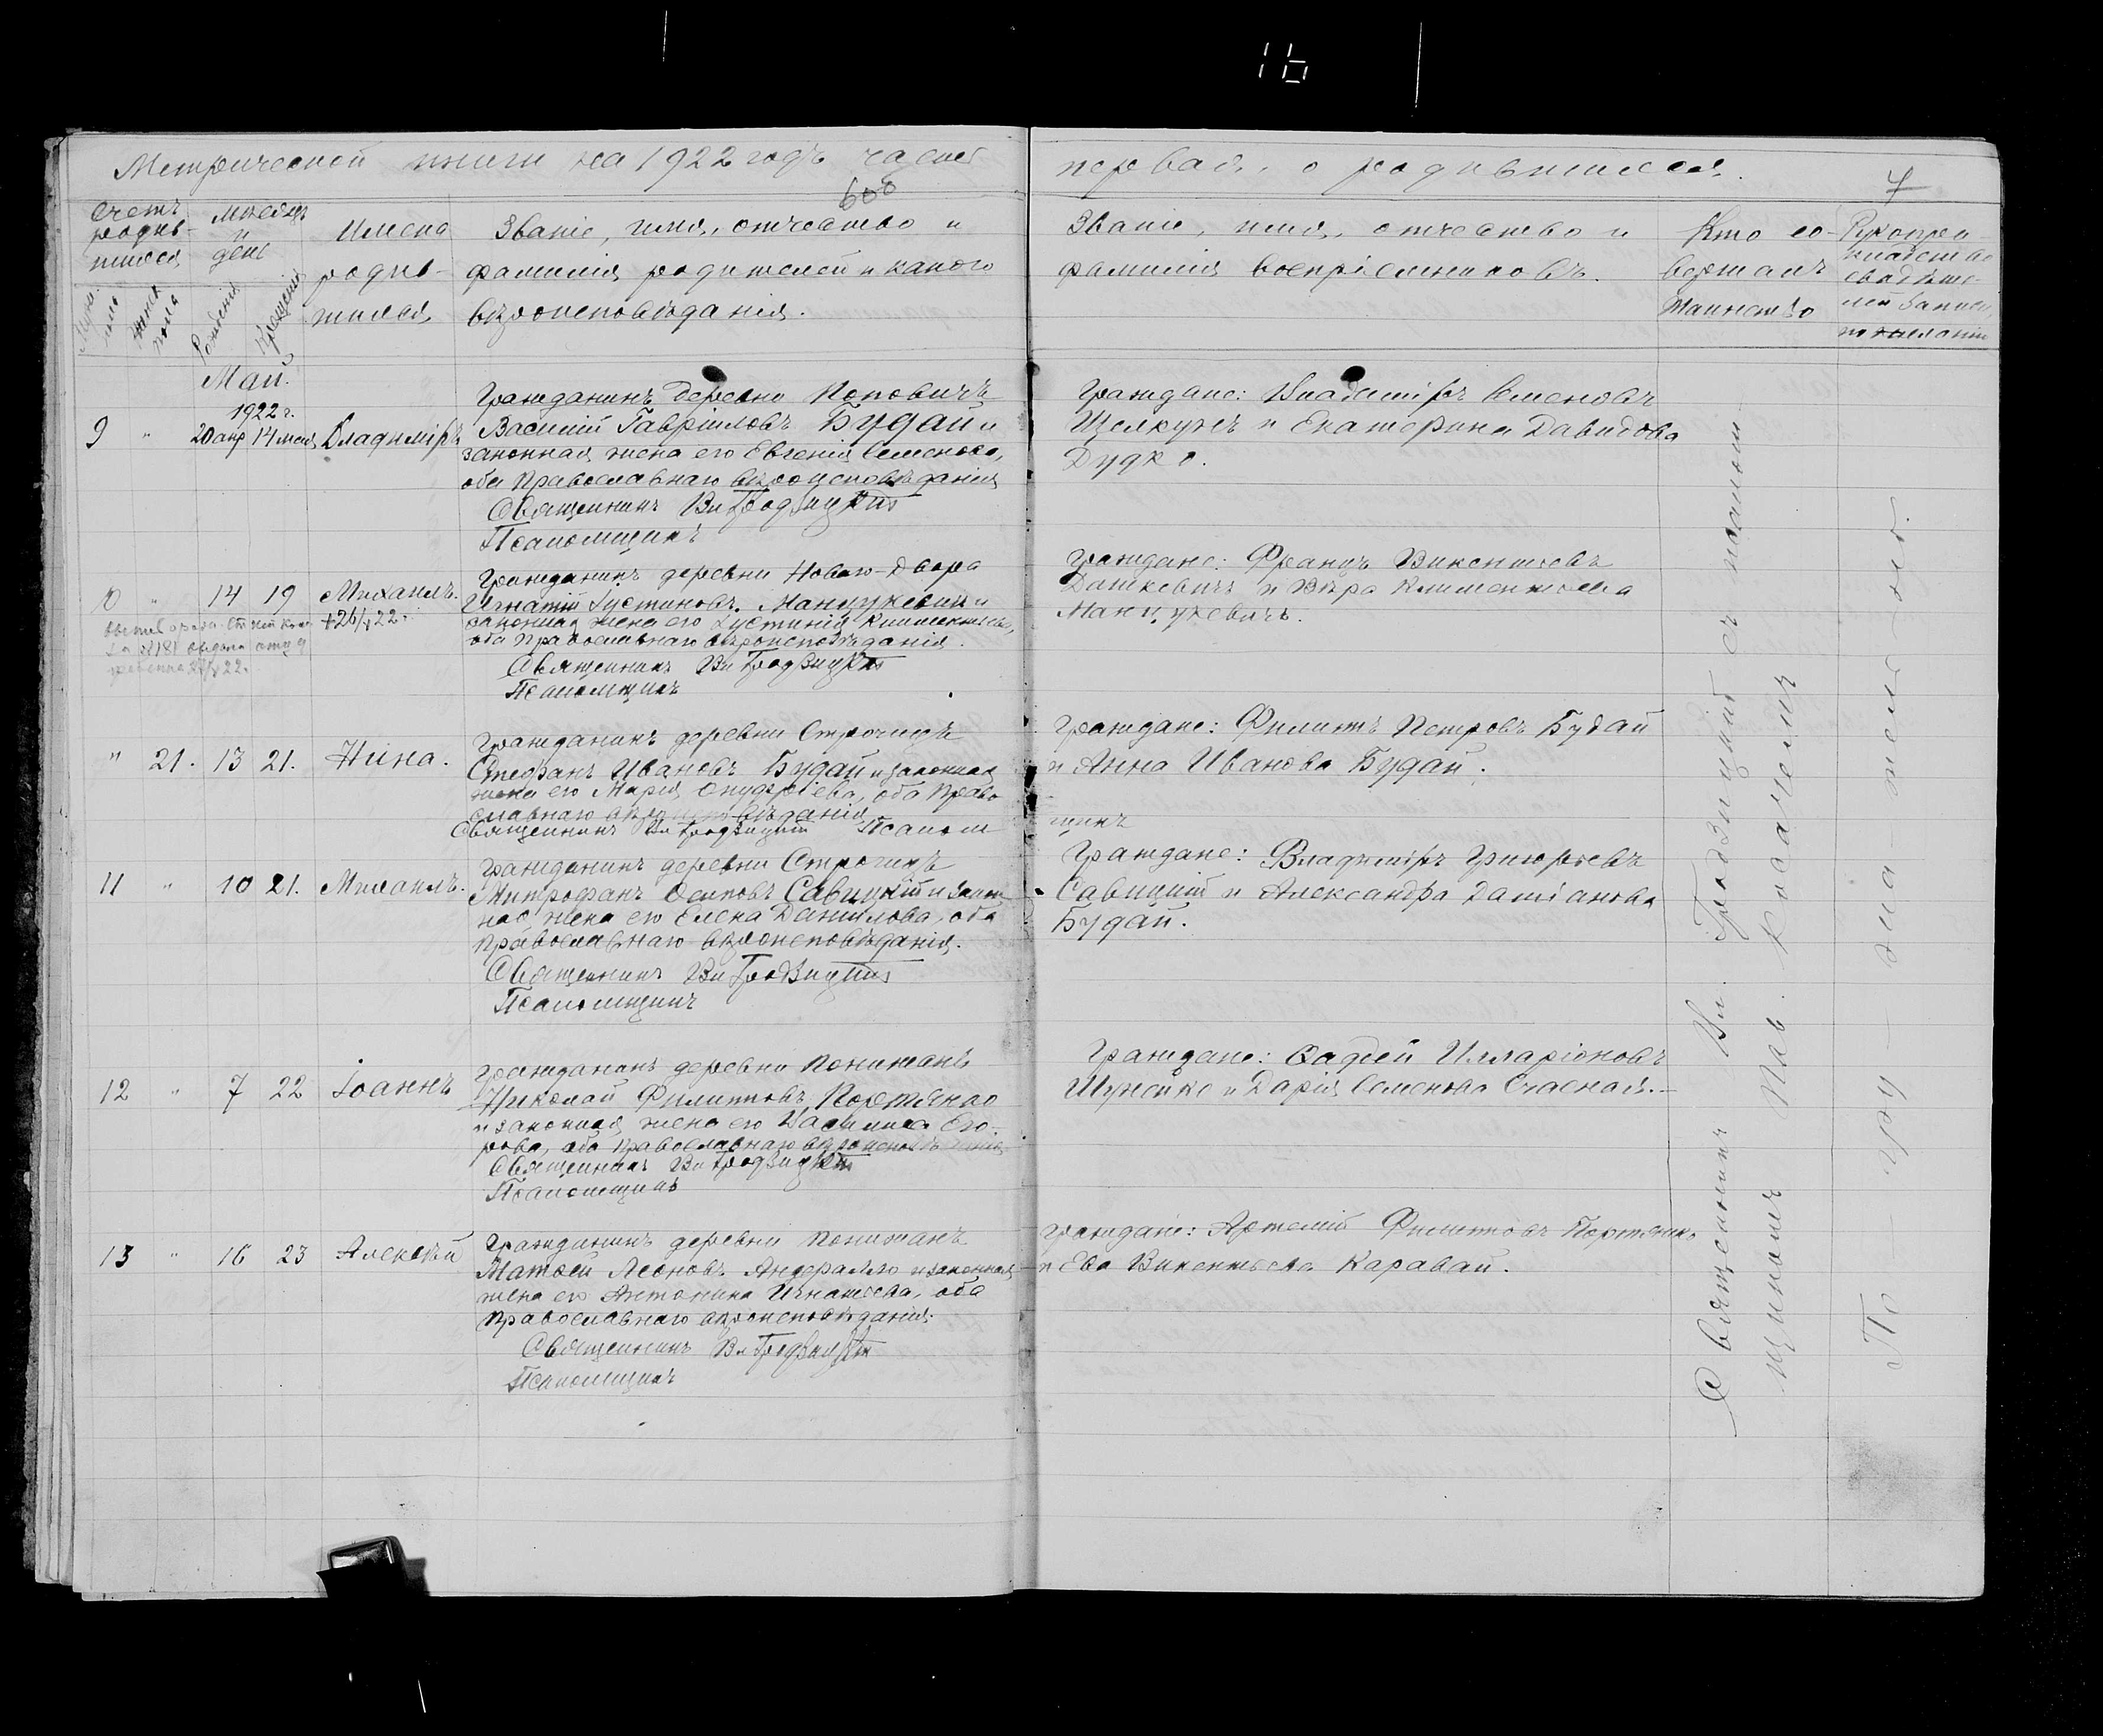 1б
Метрической книги на 1922 годъ часть
первая, о родившихся.
600
7
Счетъ родив-шихся
Мужс. пола
Женск. пола
Мѣсяцъ и день
Рожденія
Крещенія
Имена
родив-
шихся
Званіе, имя, отчество и
фамилія родителей и какого
вѣроисповѣданія.
Званіе, имя, отчество и
фамилія воспріемниковъ.
Кто со-
вершалъ
таинство
Рукопри-
кладство
свидѣте-
лей записи
по желанію
Май.
1922 г.
9 " 20 апр 14 мая Владиміръ
Гражданинъ деревни Поповичъ
Василій Гавріиловъ Будай и
законная жена его Евгенія Семенова,
оба Православнаго вѣроисповѣданія
Священникъ Вл Гродзицкій
Псаломщикъ
Граждане: Владиміръ Семеновъ
и Екатерина Давидова
Дудко.
10 " 14 19 Михаилъ.
+26/V 22.
Гражданинъ деревни Новаго-Двора
Игнатій Іустиновъ Манцукевичъ и
законная жена его Іустинія Климентьева,
оба православнаго вѣроисповѣданія.
Священникъ Вл Гродзицкій
Псаломщикъ
Граждане: Францъ Викентьевъ
Дашкевичъ и Вѣра Климентьева
Манцукевичъ.
" 21. 13 21. Нина.
Гражданинъ деревни Строчицъ
Стефанъ Ивановъ Будай и законная
жена его Марія Онуфріева, оба Право
славнаго вѣроисповѣданія
Священникъ Вл Гродзицкій Псалом
щикъ
Граждане: Филиппъ Петровъ Будай
и Анна Иванова Будай.
11 " 10 21. Михаилъ.
Гражданинъ деревни Строчицъ
Митрофанъ Осиповъ Савицкій и закон
ная жена его Елена Данилова, оба
православнаго вѣроисповѣданія.
Священникъ Вл Гродзицкій
Псаломщикъ
Граждане: Владиміръ Григорьевъ
Савицкій и Александра Даміанова
Будай.
12 " 7 22 Іоаннъ
Гражданинъ деревни Понижанъ
Николай Филипповъ Портянко
и законная жена его Василиса Его-
рова, оба православнаго вѣроисповѣданія
Священникъ Вл Гродзицкій
Псаломщикъ
Граждане: Фадей Илларіоновъ
и Дарія Семенова Счасная.
13 " 16 23 Алексѣй
Гражданинъ деревни Понижанъ
Матѳей Леоновъ Андерало и законная
жена его Антонина Игнатьева, оба
православнаго вѣроисповѣданія.
Священникъ Вл Гродзицкій
Псаломщикъ
Граждане: Артемій Филипповъ Портянко
и Ева Викентьева Каравай.
Священникъ Вл. Гродзицкій съ псалом
щикомъ